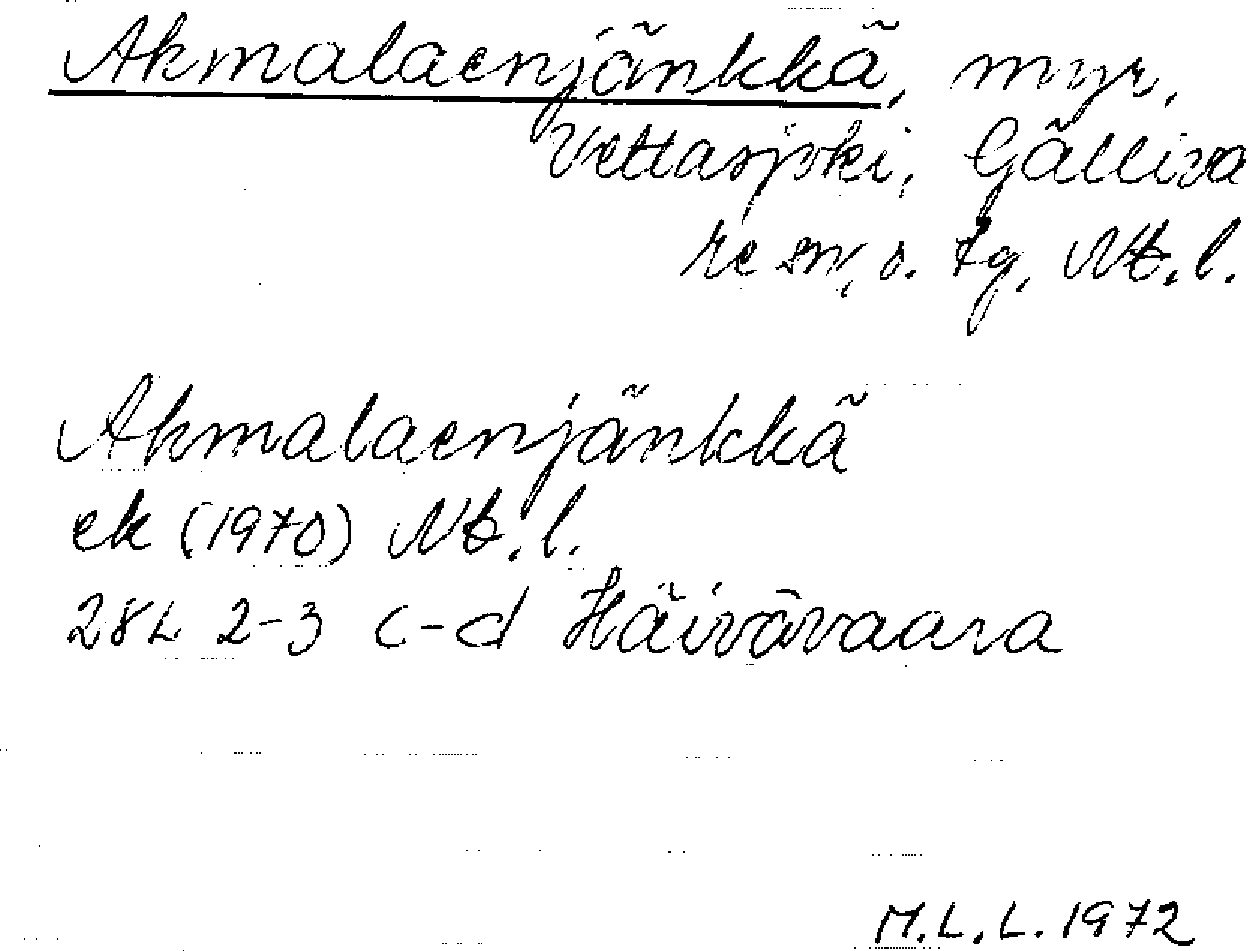 Akmalaenjänkkä, myr,
Vettasjoki, Gälliva
re sn, o. tg, Nb.l.
Akmalaenjänkkä
ek (1970) Nb.l.
28L 2-3 c-d Häivävaara
M.L.L. 1972